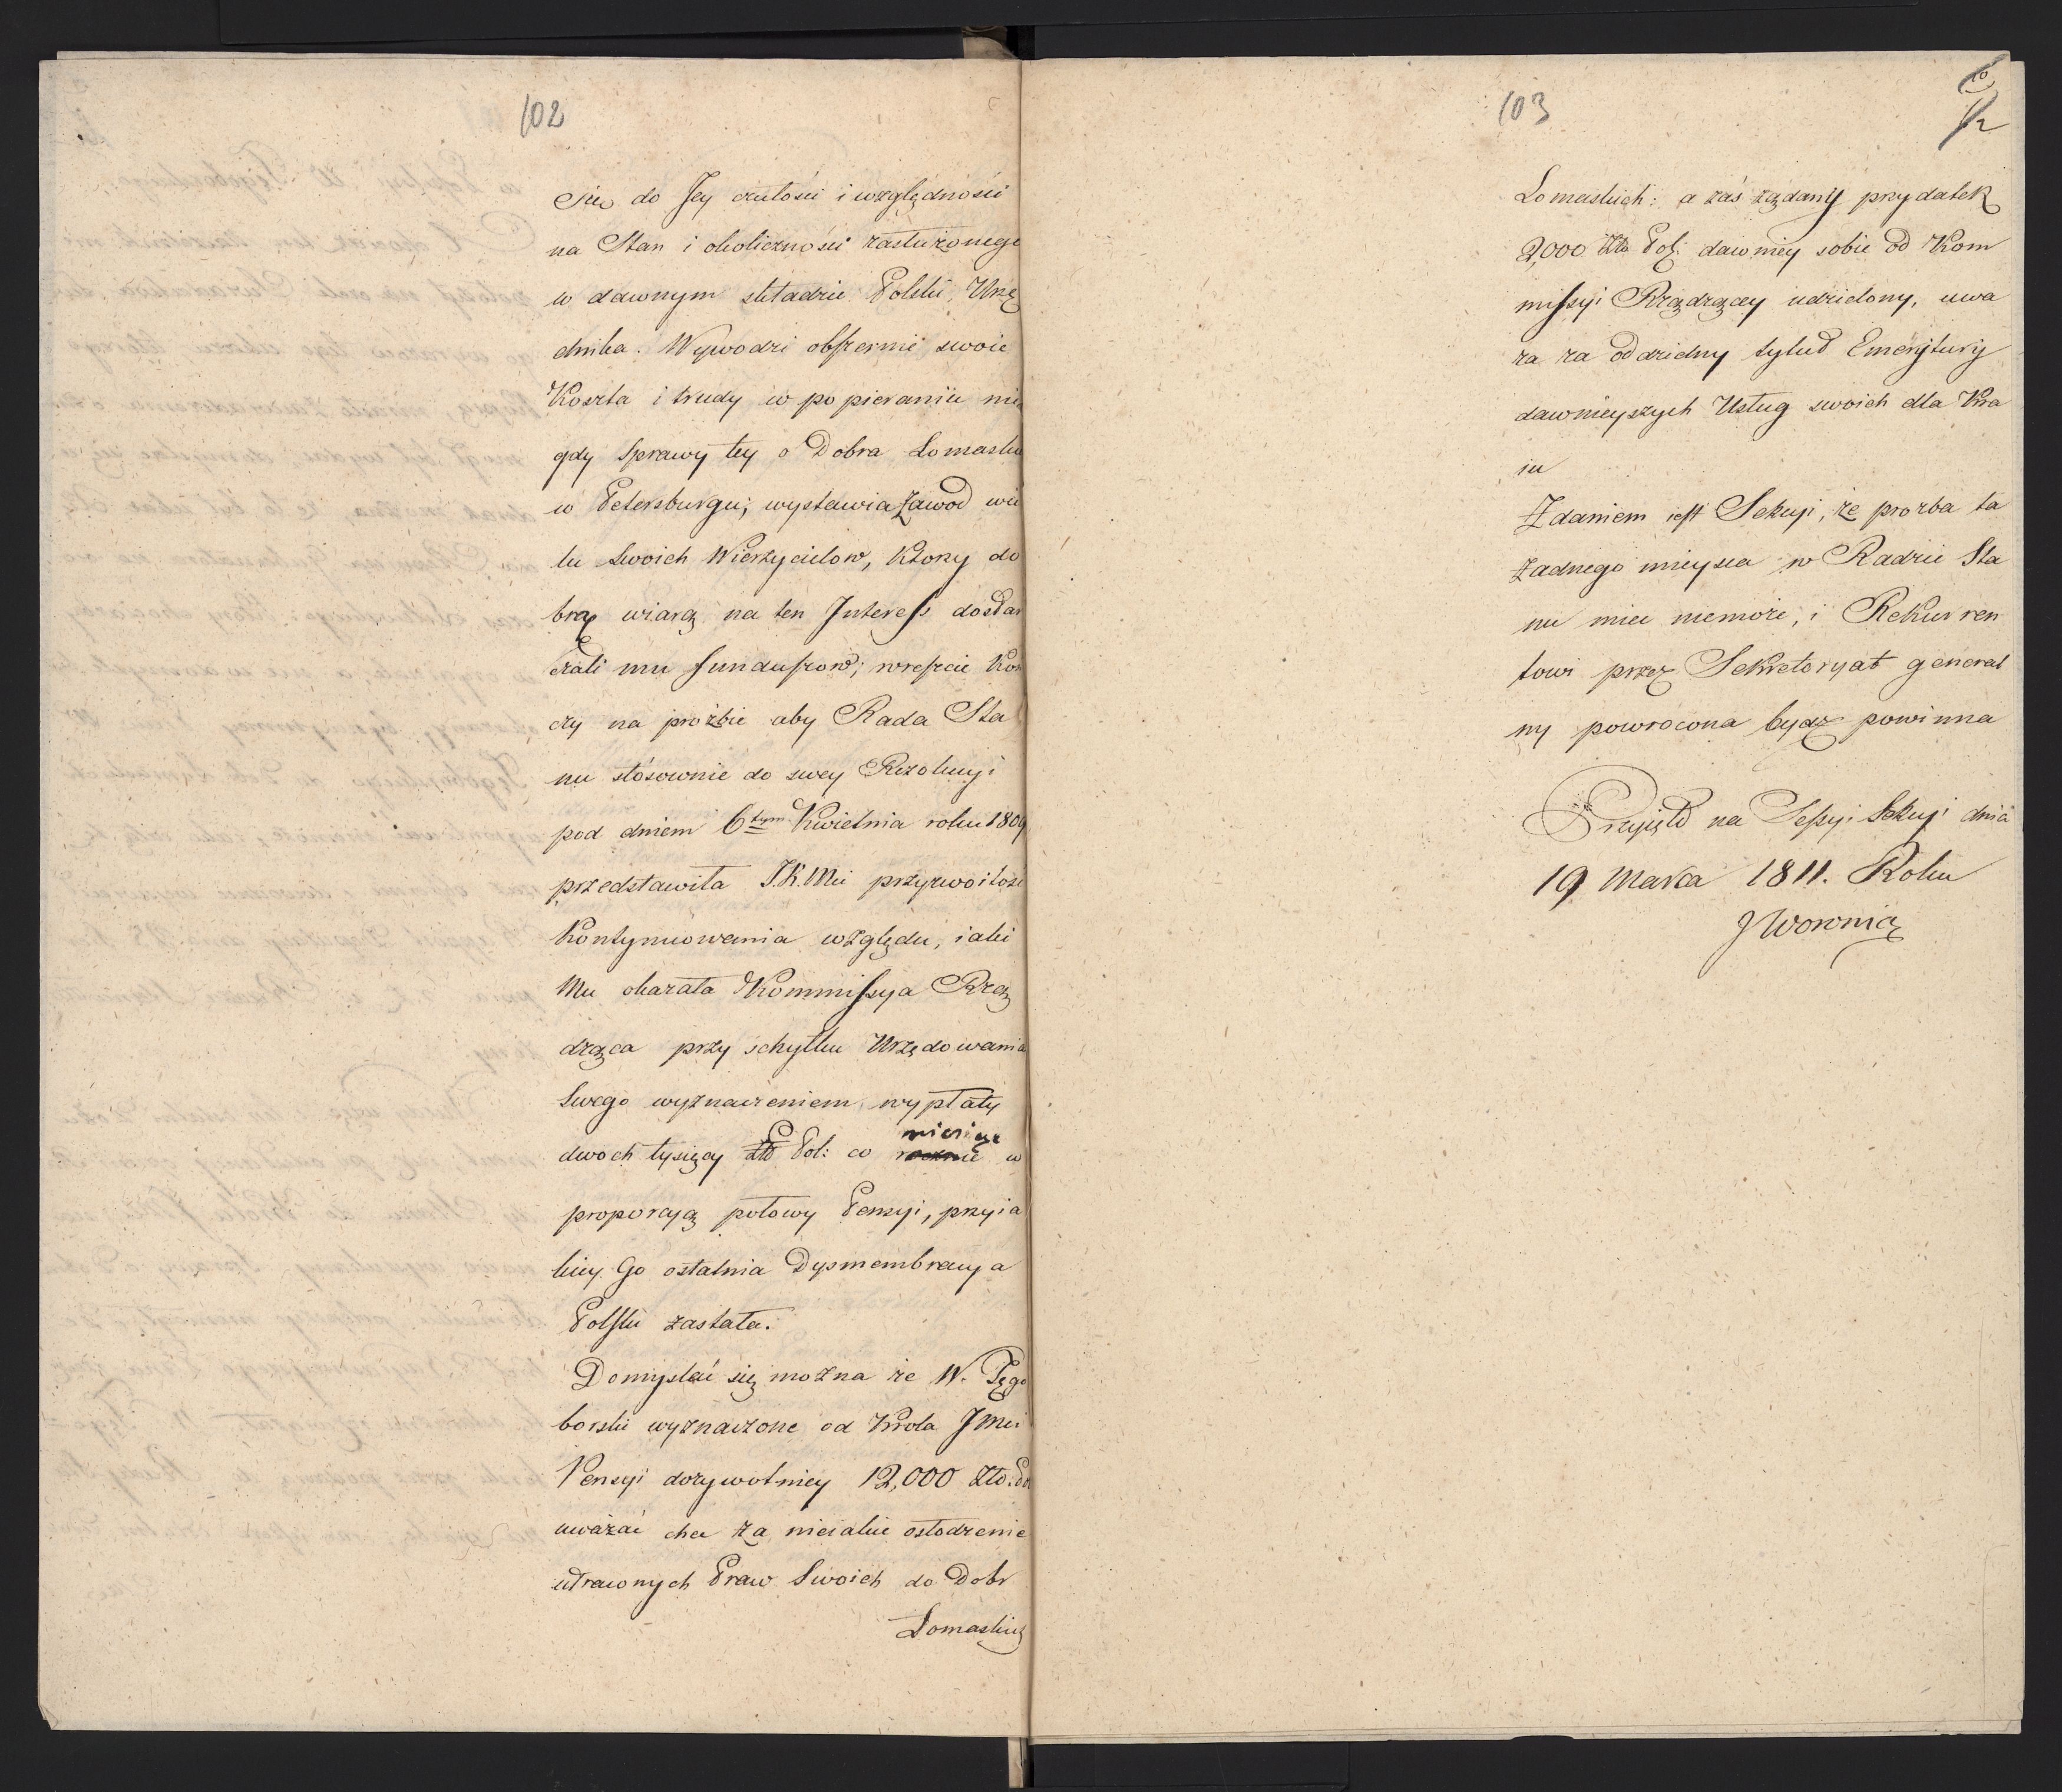 102
się do Jey czułości i względności
na Stan i okoliczności zasłużonego
w dawnym składzie Polski, Urzę
dnika. Wywodzi obszernie swoie
Koszta i trudy w popieraniu nie
gdy Sprawy tey o Dobra Łomaskie
w Petersburgu; wystawia zawod wie
lu swoich Wierzycielow, Ktorzy do
brą wiarą na ten Interess dostar
czali mu funduszow; wreszcie Koń
czy na proźbie aby Rada Sta
nu stósownie do swey Rezolucyi
pod dniem 6tym Kwietnia roku 1809
przedstawiła J.K.Mci przyzwoitość
Kontynuowania względu, iaki
Mu okazała Kommissya Rzą
dząca przy schyłku Urzędowania
Swego wyznaczeniem wypłaty
dwoch tysięcy Zło Pol: co miesiąc w
proporcyą połowy Pensyi, przy ia
kiey Go ostatnia Dysmembracya
Polski zastała.
Domyslać się można że W. Tęgo
borski wyznaczone od Krola Jmci
Pensyi dożywotniey 12,000 Zło: Po
uważać chce za nieiakie osłodzenie
utraconych Praw Swoich do Dobr
Łomaskich
103
12
Łomaskich: a zaś żądany przydatek
2,000 Zło Pol: dawniey sobie od Kom
missyi Rządzącey udzielony, uwa
za za oddzielny tytuł Emerytury
dawnieyszych Usług swoich dla Kra
iu
Zdaniem iest Sekcyi, że prozba ta
żadnego mieysca w Radzie Sta
nu miec niemoże, i Rekurren
towi przez Sekretaryat general
ny powrocona bydz powinna
Przyięto na Sessyi Sekcyi dnia
19 Marca 1811. Roku
J Woronicz